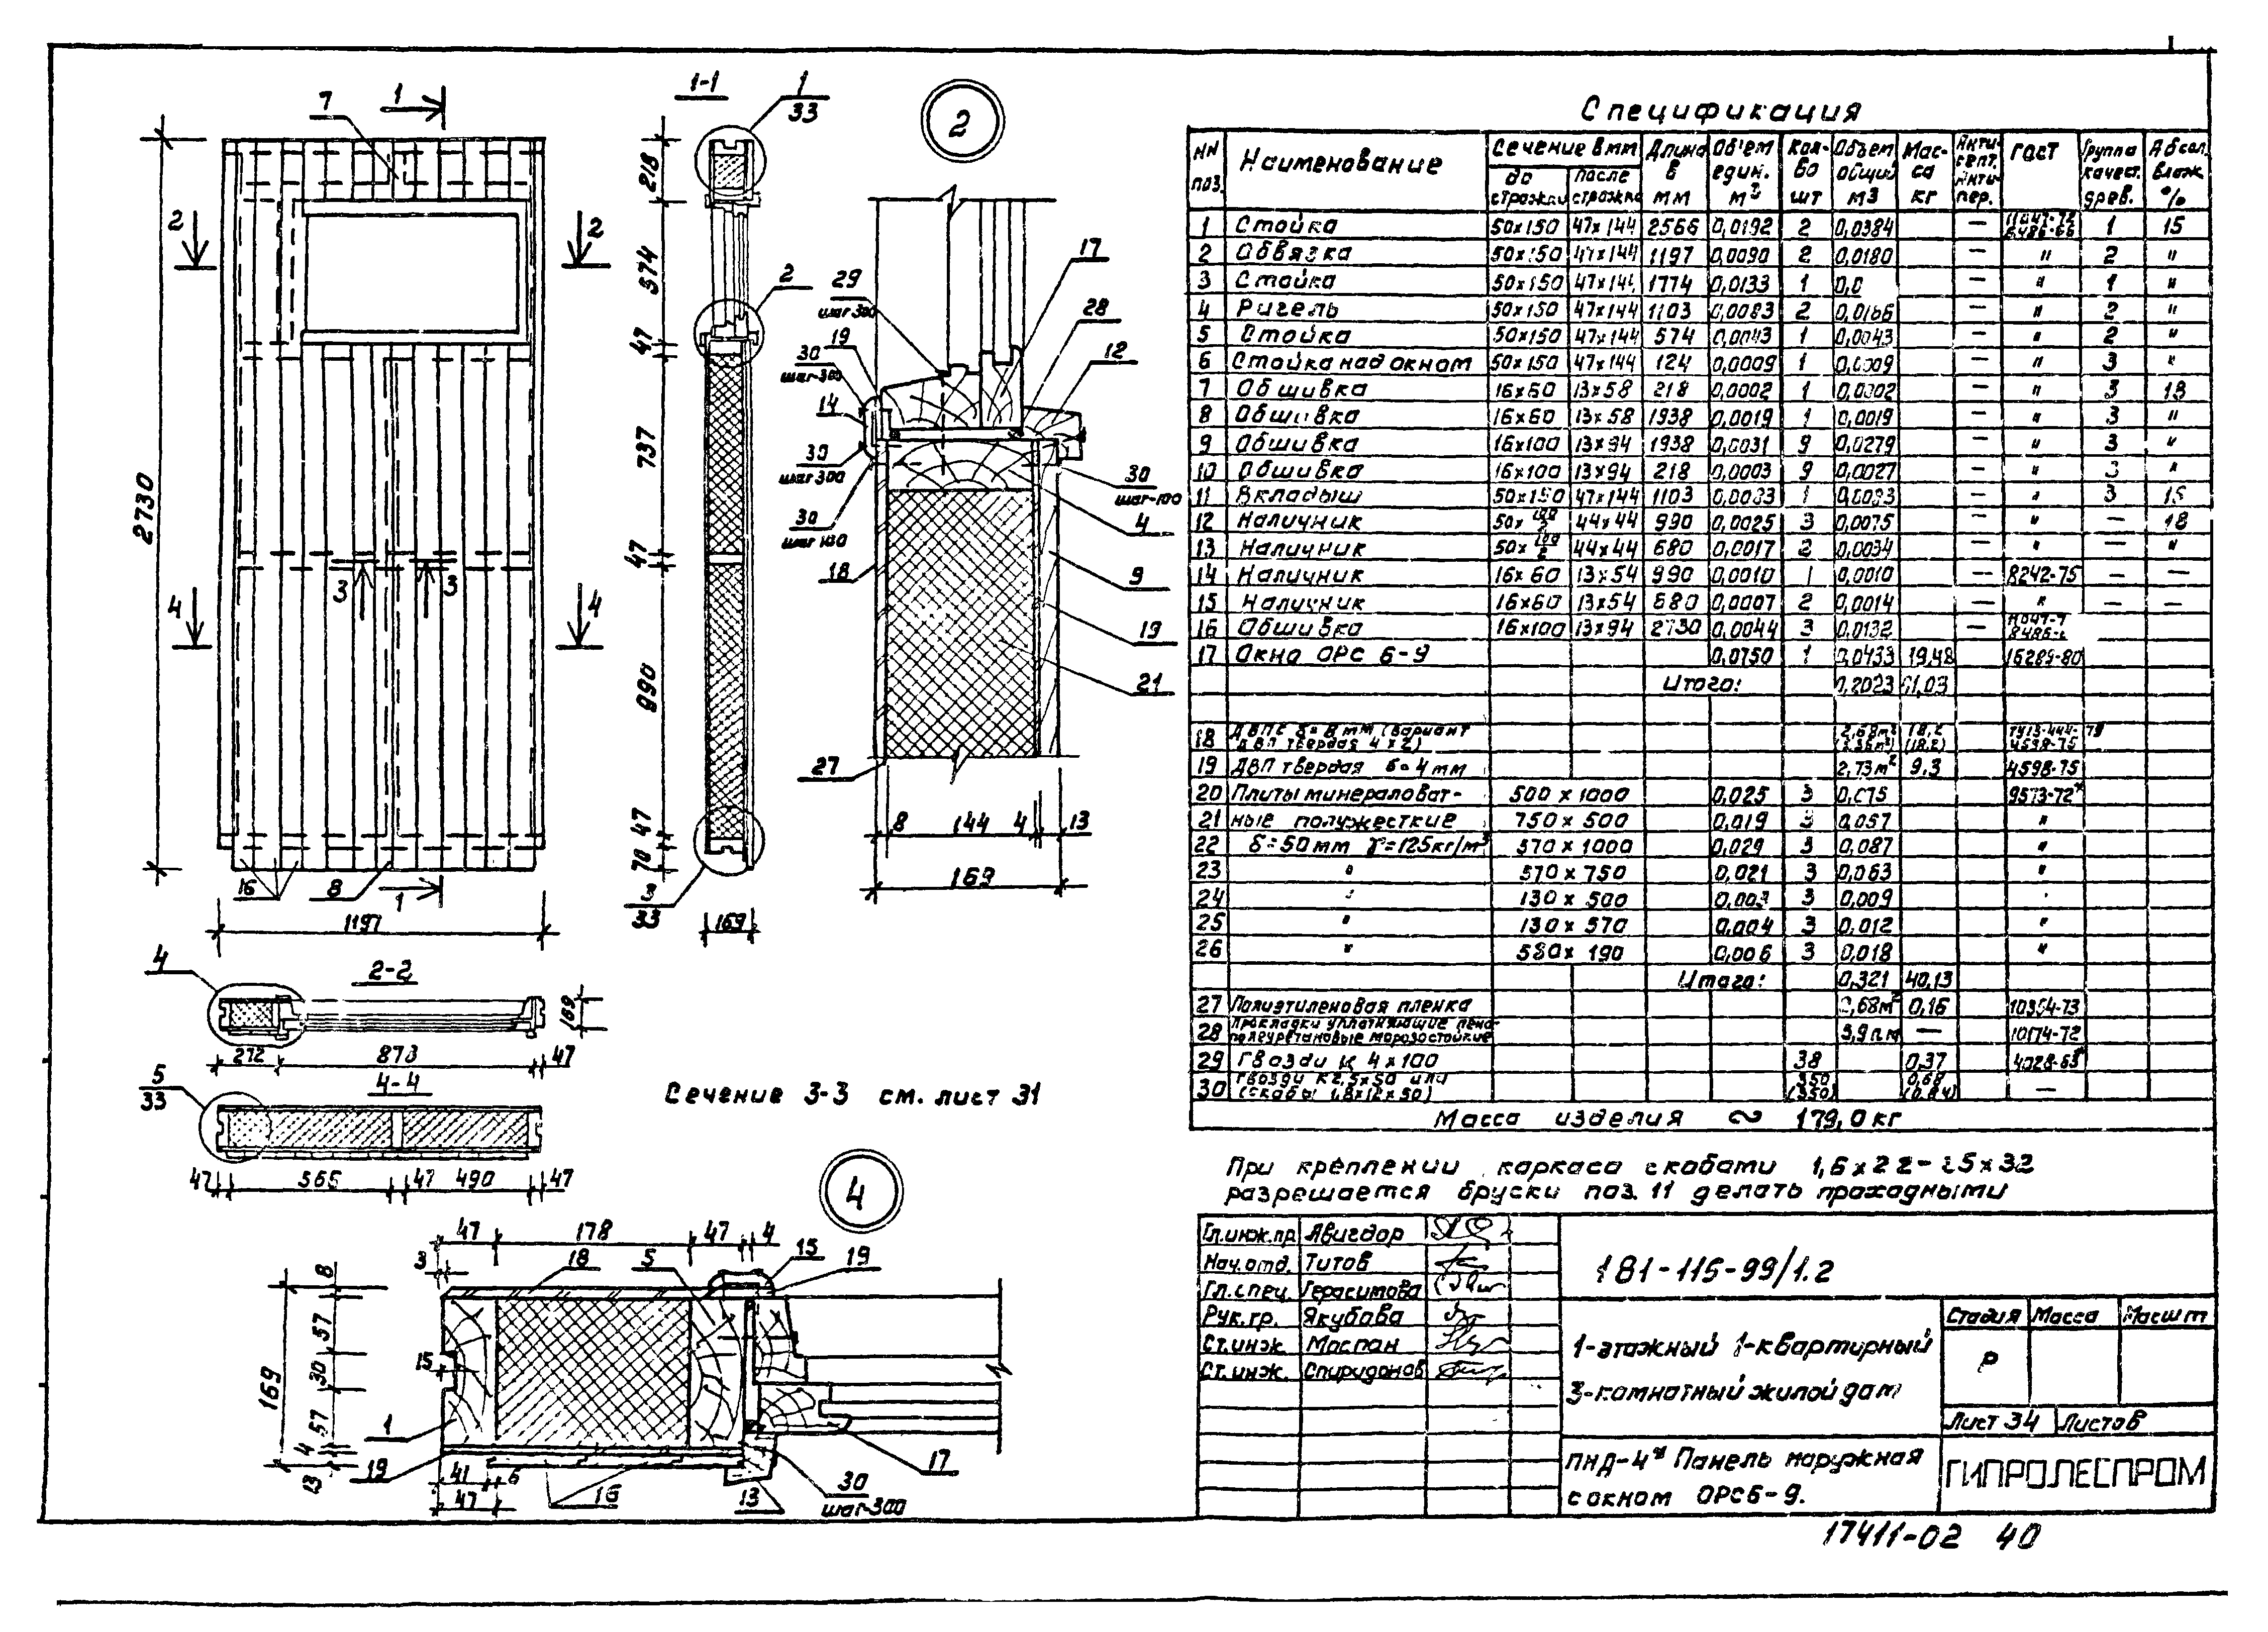 1
7
2730
2
2
3
3
4
4
16
8
1
1197
1-1
1
33
218
574
47
2
737
47
990
47
70
3
33
169
2
29
шаг 300
19
30
шаг-300
14
30
шаг 300
30
18
27
17
28
12
30
4
9
19
21
8
144
4
13
169
4
2-2
169
272
47
5
33
4-4
47
565
47
490
47
Сечение 3-3 см. лист 31
4
47
178
47
4
3
18
5
15
19
8
57
15
30
57
4
13
169
1
19
41
6
47
16
13
30
шаг-300
17
Спецификация
NN поз.
Наименование
Сечение в мм
до строжки
после строжки
Длина в мм
Объем един. м3
Кол-во шт
Объем общий м3
Масса кг
Антисепт. Антипер.
ГОСТ
Группа качест. древ.
Абсол. влаж. %
1 Стойка 50х150 47х144 2566 0,0192 2 0,0384 — 1 15
2 Обвязка 50х150 47х144 1197 0,0090 2 0,0180 — " 2 "
3 Стойка 50х150 47х144 1774 0,0133 1 — " 1 "
4 Ригель 50х150 47х144 1103 0,0083 2 0,0166 — " 2 "
5 Стойка 50х150 47х144 574 0,0043 1 0,0043 — " 2 "
6 Стойка над окном 50х150 47х144 124 0,0009 1 0,0009 — " 3 "
7 Обшивка 16х60 13х58 218 0,0002 1 0,0002 — " 3 18
8 Обшивка 16х60 13х58 1938 0,0019 1 0,0019 — " 3 "
9 Обшивка 16х100 13х94 1938 0,0031 9 0,0279 — " 3 "
10 Обшивка 16х100 13х94 218 0,0003 9 0,0027 — " 3 "
11 Вкладыш 50х150 47х144 1103 0,0083 1 0,0083 — " 3 15
12 Наличник 50х 100/2 44х44 990 0,0025 3 0,0075 — " — 18
13 Наличник 50х 100/2 44х44 680 0,0017 2 0,0034 — " — "
14 Наличник 16х60 13х54 990 0,0010 1 0,0010 — 8242-75 — —
15 Наличник 16х60 13х54 680 0,0007 2 0,0014 — " — —
16 Обшивка 16х100 13х94 2730 0,0044 3 0,0132 —
17 Окно ОРС 6-9 0,0750 1 0,0433 19,48 16289-80
Итого: 0,2023
18 ДВПС δ=8мм (вариант
ДВП твердая 4х2) 4598-75
19 ДВП твердая δ=4мм 2,73м2 9,3 4598-75
20 Плиты минераловат- 500 х 1000 0,025 3 0,075 9573-72*
21 ные полужесткие 750 х 500 0,019 3 0,057 "
22 δ=50мм γ=125кг/м3 570 х 1000 0,029 3 0,087 "
23 " 570 х 750 0,021 3 0,063 "
24 " 130 х 500 0,003 3 0,009 "
25 " 130 х 570 0,004 3 0,012 "
26 " 580х 190 0,006 3 0,018 "
Итого: 0,321 40,13
27 Полиэтиленовая пленка 0,16 10354-73
28 Прокладки уплотняющие пено-
полеуретановые морозостойкие 3,9 п.м — 10174-72
29 Гвозди К 4х100 38 0,37
30 Гвозди К2,5х50 или 350 0,68
(скобы 1,8х12х50) (350) —
Масса изделия ~ 179,0 кг
При креплении каркаса скобами
разрешается бруски поз. 11 делать проходными
Гл.инж.пр. Авигдор
Нач.отд. Титов
Гл.спец. Герасимова
Рук.гр. Якубова
Ст.инж. Моспан
Ст.инж. Спиридонов
181-115-99/1.2
1-этажный 1-квартирный
3-комнатный жилой дом
Стадия Масса Масшт
Р
Лист 34 Листов
Панель наружная
с окном ОРС6-9.
ГИПРОЛЕСПРОМ
17411-02 40